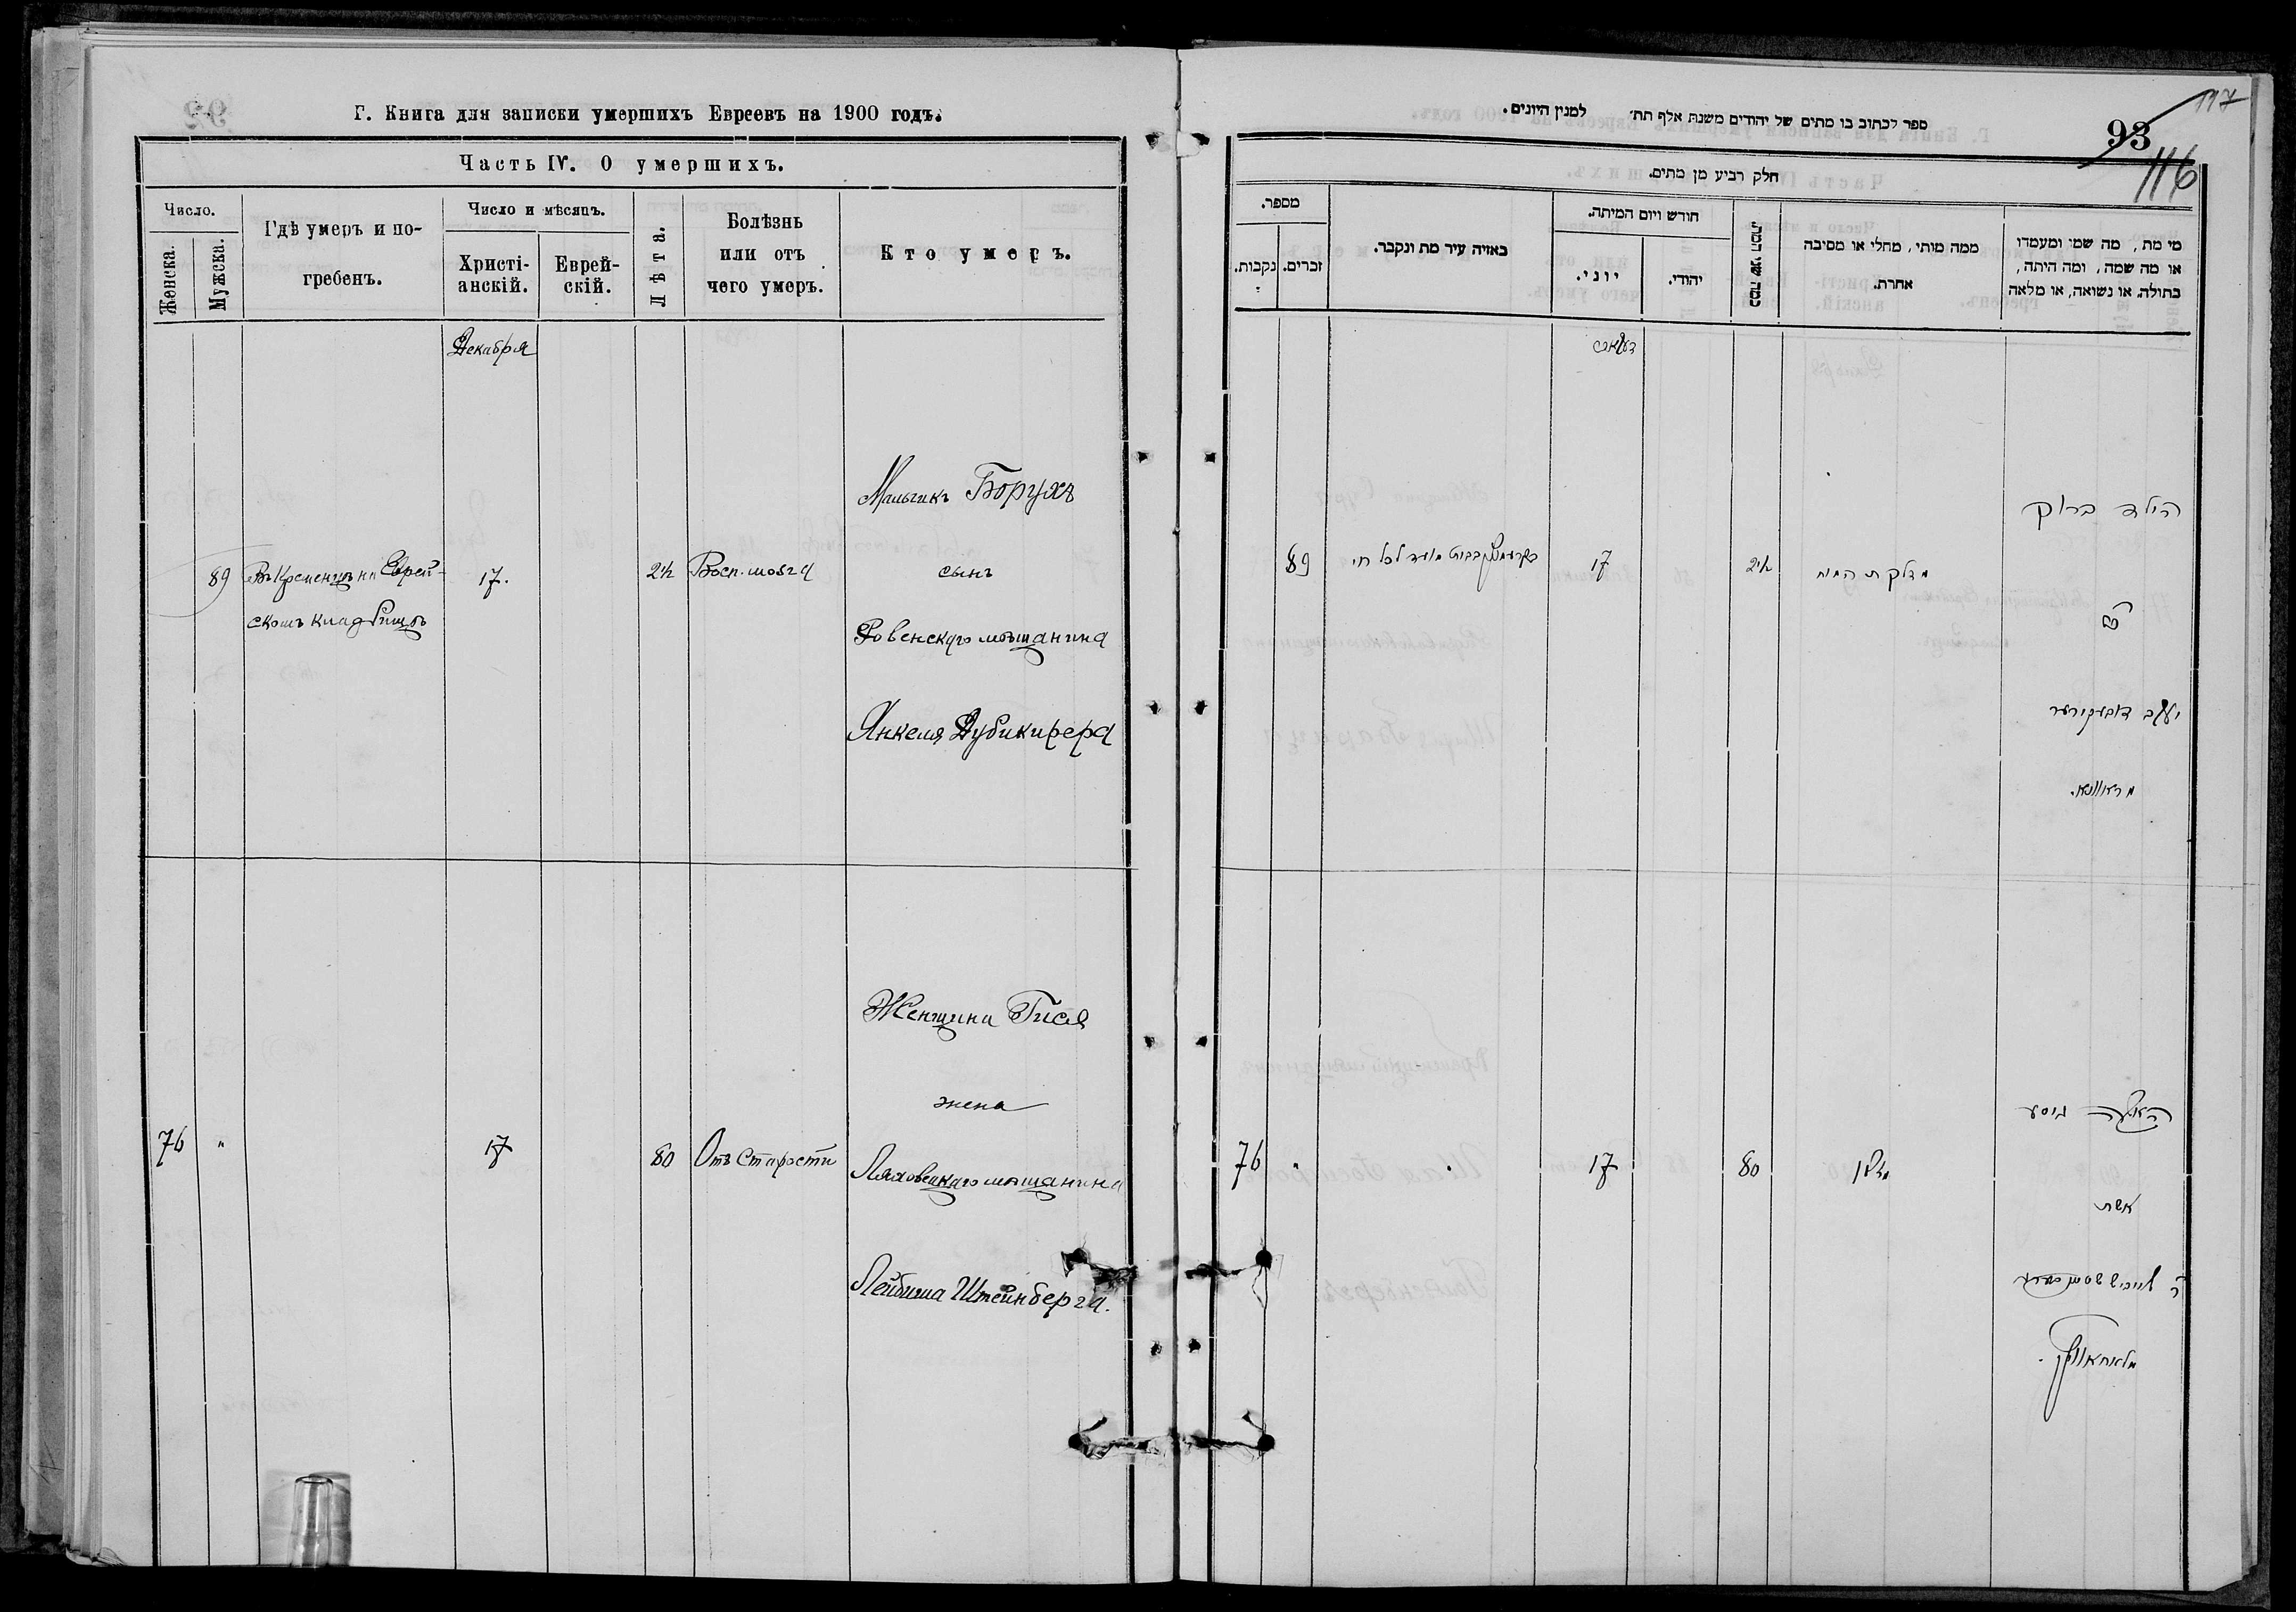 Г. Книга для записки умершихъ Евреевъ на 1900 годъ.
Часть IV. О умершихъ.
Число.
Женска.
Мужска.
Гдѣ умеръ и по-
гребенъ.
Число и мѣсяцъ.
Христі-
анскій.
Еврей-
скій.
Лѣта.
Болѣзнь
или отъ
чего умеръ.
Кто умеръ.
Декабря
Мальчикъ Борухъ
89 Въ Кременцѣ на Еврей- 17. 2½ Восп. мозга сынъ
скомъ кладбищѣ
Ровенскаго мѣщанина
Янкеля Дубикифера
Женщина Гися
жена
76 " 17 80 Отъ старости Ляховецкаго мѣщанина
Лейбиша Штейнберга.
ספר לכתוב בו מתים של יהודים משנת אלף תת׳ למנין היונים.
93
117
116
חלק רביע מן מתים.
מספר.
נקבות.
זכרים.
באיזה עיר מת ונקבר.
חודש ויום המיתה.
יוני.
יהודי.
כמה שני המת.
ממה מותו, מחלי או מסיבה
אחרת.
מי מת, מה שמו ומעמדו
או מה שמה, ומה היתה,
בתולה, או נשואה, או מלאה
דעקאב
הילד ברוך
89 לכל חי 17 2½ מדלקת המוח
בן
יעקב
מראוונא.
האשה גיסע
76 " " 17 80 מזקן
אשת
ר לייביש